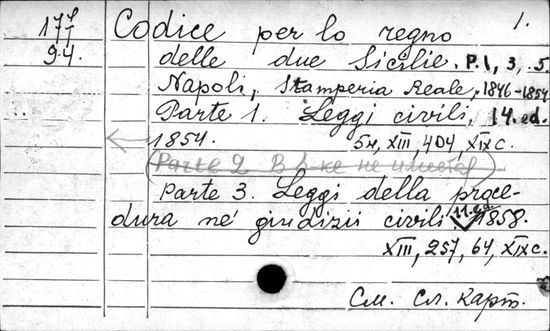 17 7/94
1.
Codice per lo regno
delle due Sicilie. P. 1, 3, 5
Napoli, Stamperia Reale, 1846-1854
Parte 1. Leggi civili, 14. ed.
1854. 5н, XIII, 404, XIX с.
(Parte 2 В б-ке не имеется)
Parte 3. Leggi della proce-
dura ne' giudizii civili, 11. ed. 1858.
XIII, 257, 64, XIX с.
См. сл. карт.